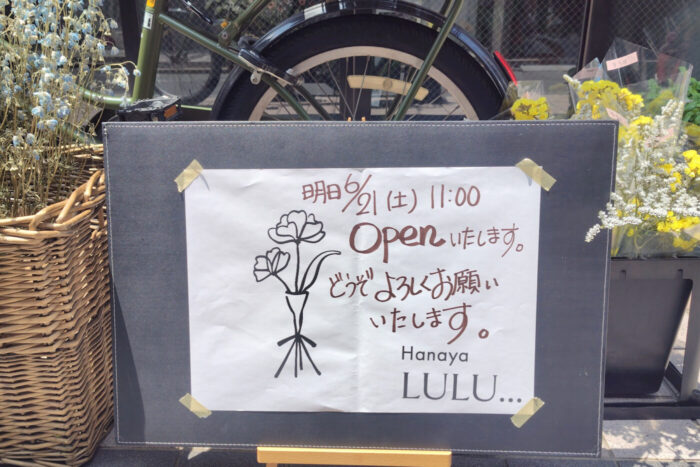 明日6/21(土) 11:00
Openいたします。
どうぞよろしくお願い
いたします。
Hanaya
LULU...